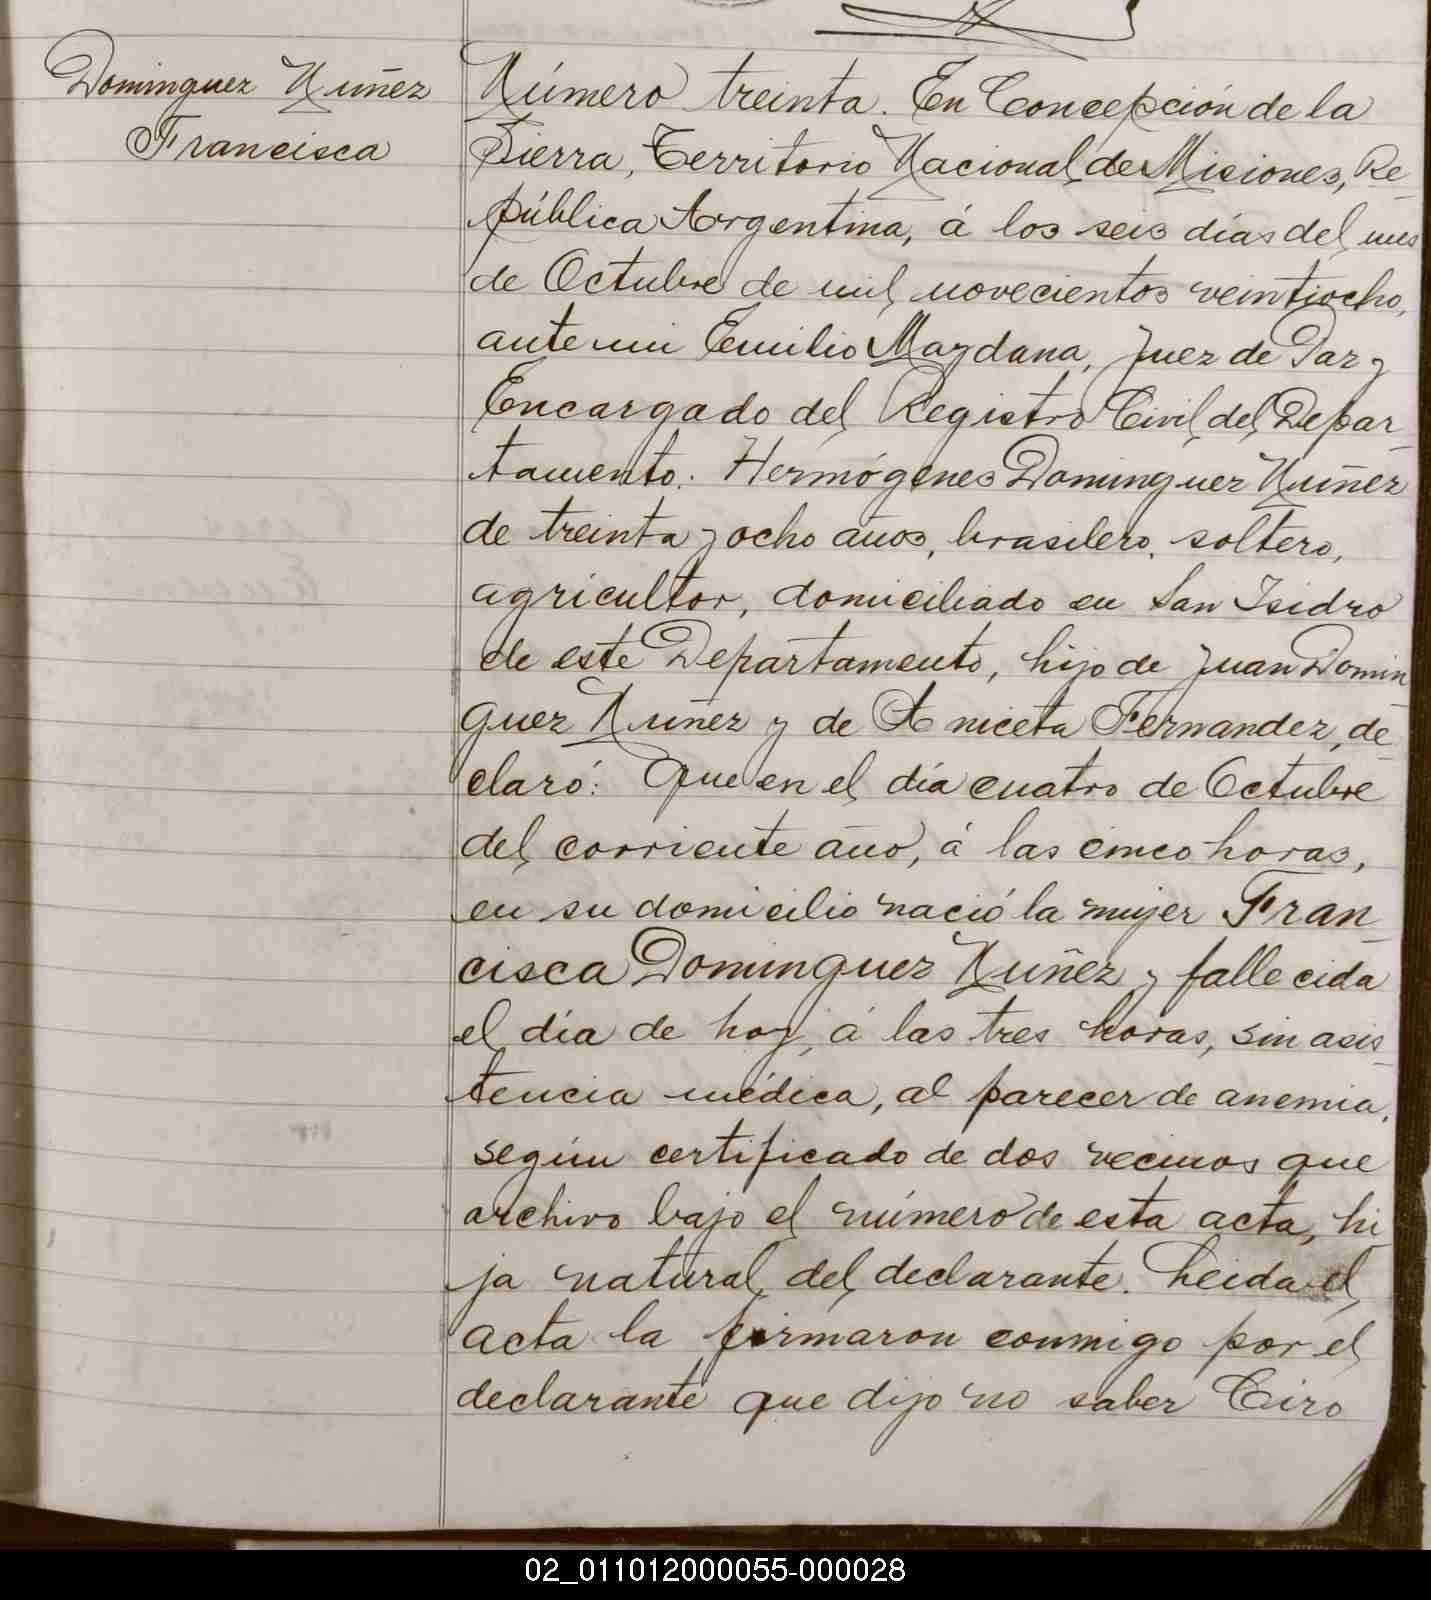 Dominguez Nuñez
Francisca
Número treinta. En Concepción de la
Sierra, Territorio Nacional de Misiones, Re-
pública Argentina, á los seis días del mes
de Octubre de mil novecientos veintiocho,
ante mi Emilio Maydana, Juez de Paz y
Encargado del Registro Civil del Depar-
tamento: Hermógenes Dominguez Nuñez
de treinta y ocho años, brasilero, soltero,
agricultor, domiciliado en San Isidro
de este Departamento, hijo de Juan Domin
guez Nuñez y de Aniceta Fernandez, de-
claró: Que en el día cuatro de Octubre
del corriente año, á las cinco horas,
en su domicilio nació la mujer Fran-
cisca Dominguez Nuñez y fallecida
el día de hoy, á las tres horas, sin asis-
tencia médica, al parecer de anemia,
según certificado de dos vecinos que
archivo bajo el número de esta acta, hi-
ja natural del declarante. Leida el
acta la firmaron conmigo por el
declarante que dijo no saber Ciro
02_011012000055-000028